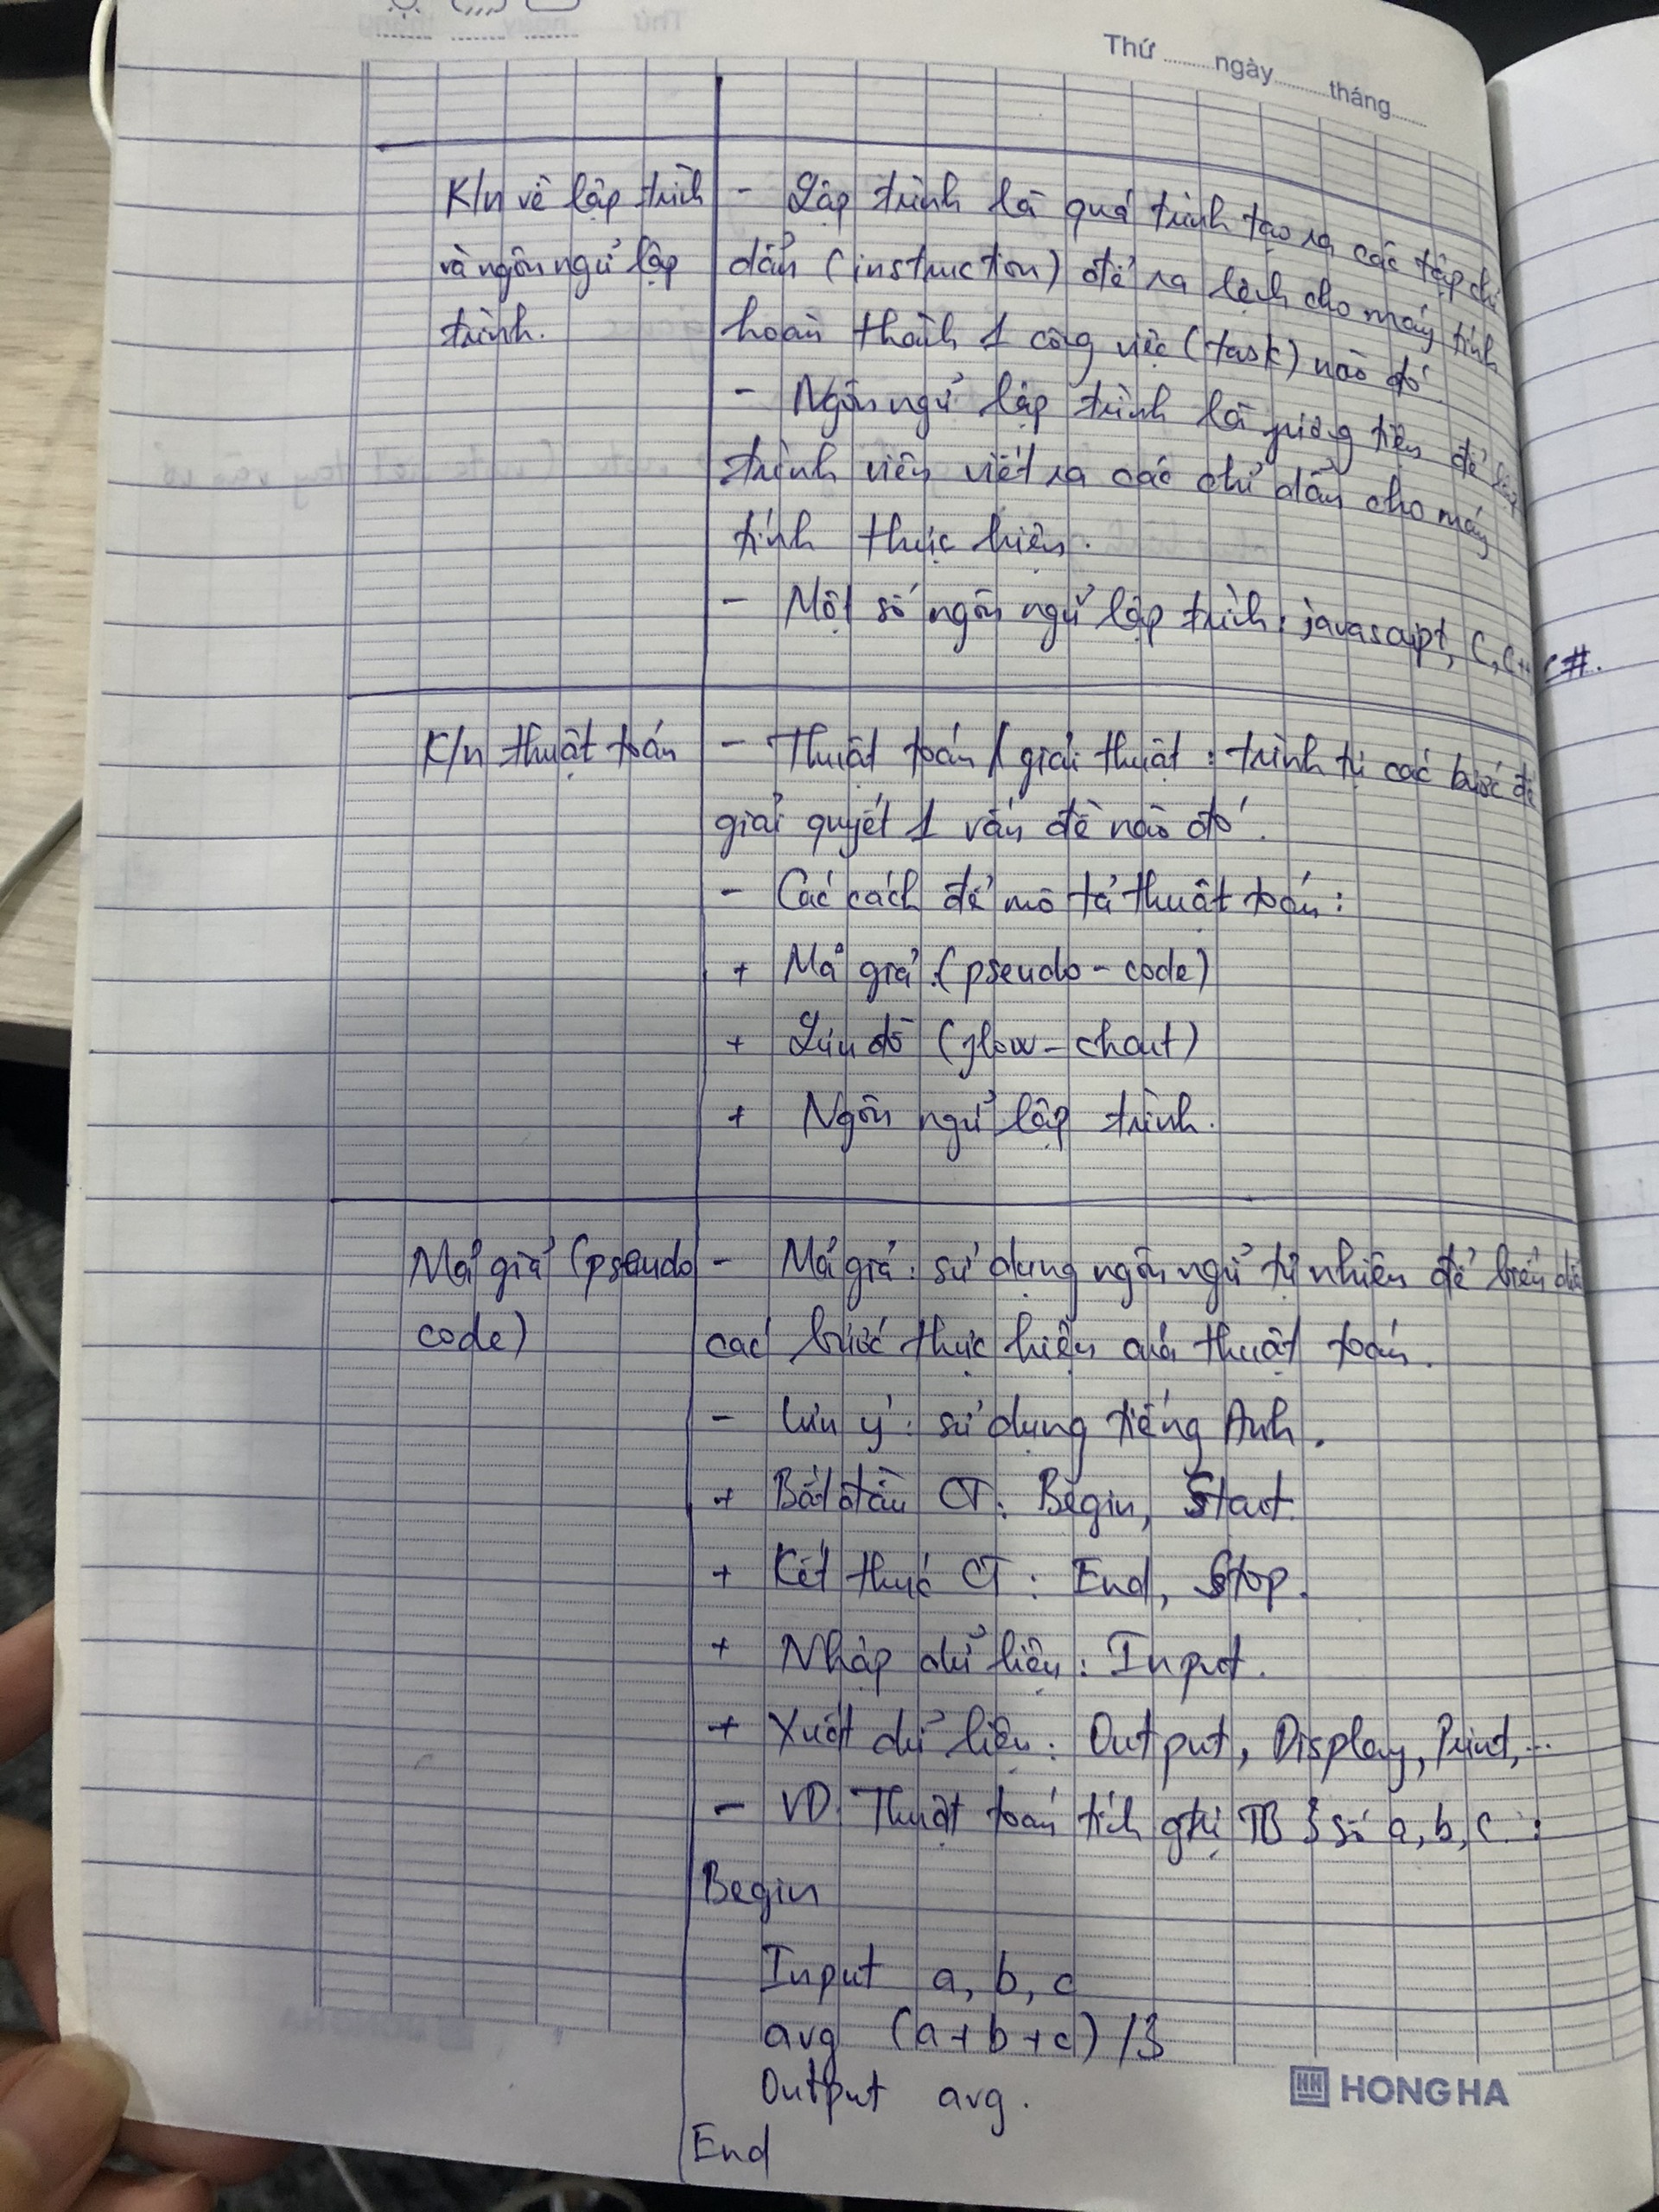 Thứ ......... ngày ......... tháng .........
K/n về lập trình
và ngôn ngữ lập
trình.
- Lập trình là quá trình tạo ra các tập chỉ
dẫn (instruction) để ra lệnh cho máy tính
hoàn thành 1 công việc (task) nào đó.
- Ngôn ngữ lập trình là phương tiện để lập
trình viên viết ra các chỉ dẫn cho máy
tính thực hiện.
- Một số ngôn ngữ lập trình: javascript, C, C++, C#.
K/n thuật toán
- Thuật toán / giải thuật: trình tự các bước để
giải quyết 1 vấn đề nào đó.
- Các cách để mô tả thuật toán:
+ Mã giả (pseudo-code)
+ Lưu đồ (flow-chart)
+ Ngôn ngữ lập trình.
Mã giả (pseudo
code)
- Mã giả: sử dụng ngôn ngữ tự nhiên để biểu diễn
các bước thực hiện của thuật toán.
- Lưu ý: sử dụng tiếng Anh.
+ Bắt đầu CT: Begin, Start.
+ Kết thúc CT: End, Stop.
+ Nhập dữ liệu: Input.
+ Xuất dữ liệu: Output, Display, Print,...
- VD: Thuật toán tính gtrị TB 3 số a, b, c:
Begin
Input a, b, c
avg (a+b+c)/3
Output avg.
End
HONG HA